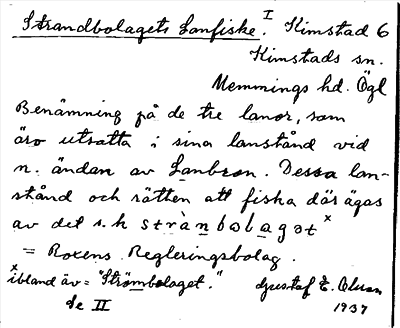 Strandbolagets Lanfiske. I Kimstad 6
Kimstads sn.
Memmings hd. Ögl
Benämning på de tre lanor, som
äro utsatta i sina lanstånd vid
n. ändan av Lanbron. Dessa lan-
stånd och rätten att fiska där ägas
av det s.k strànbolagət x
= Roxens Regleringsbolag.
x ibland äv = "Strömbolaget."
Gustaf E. Olson
Se II
1937